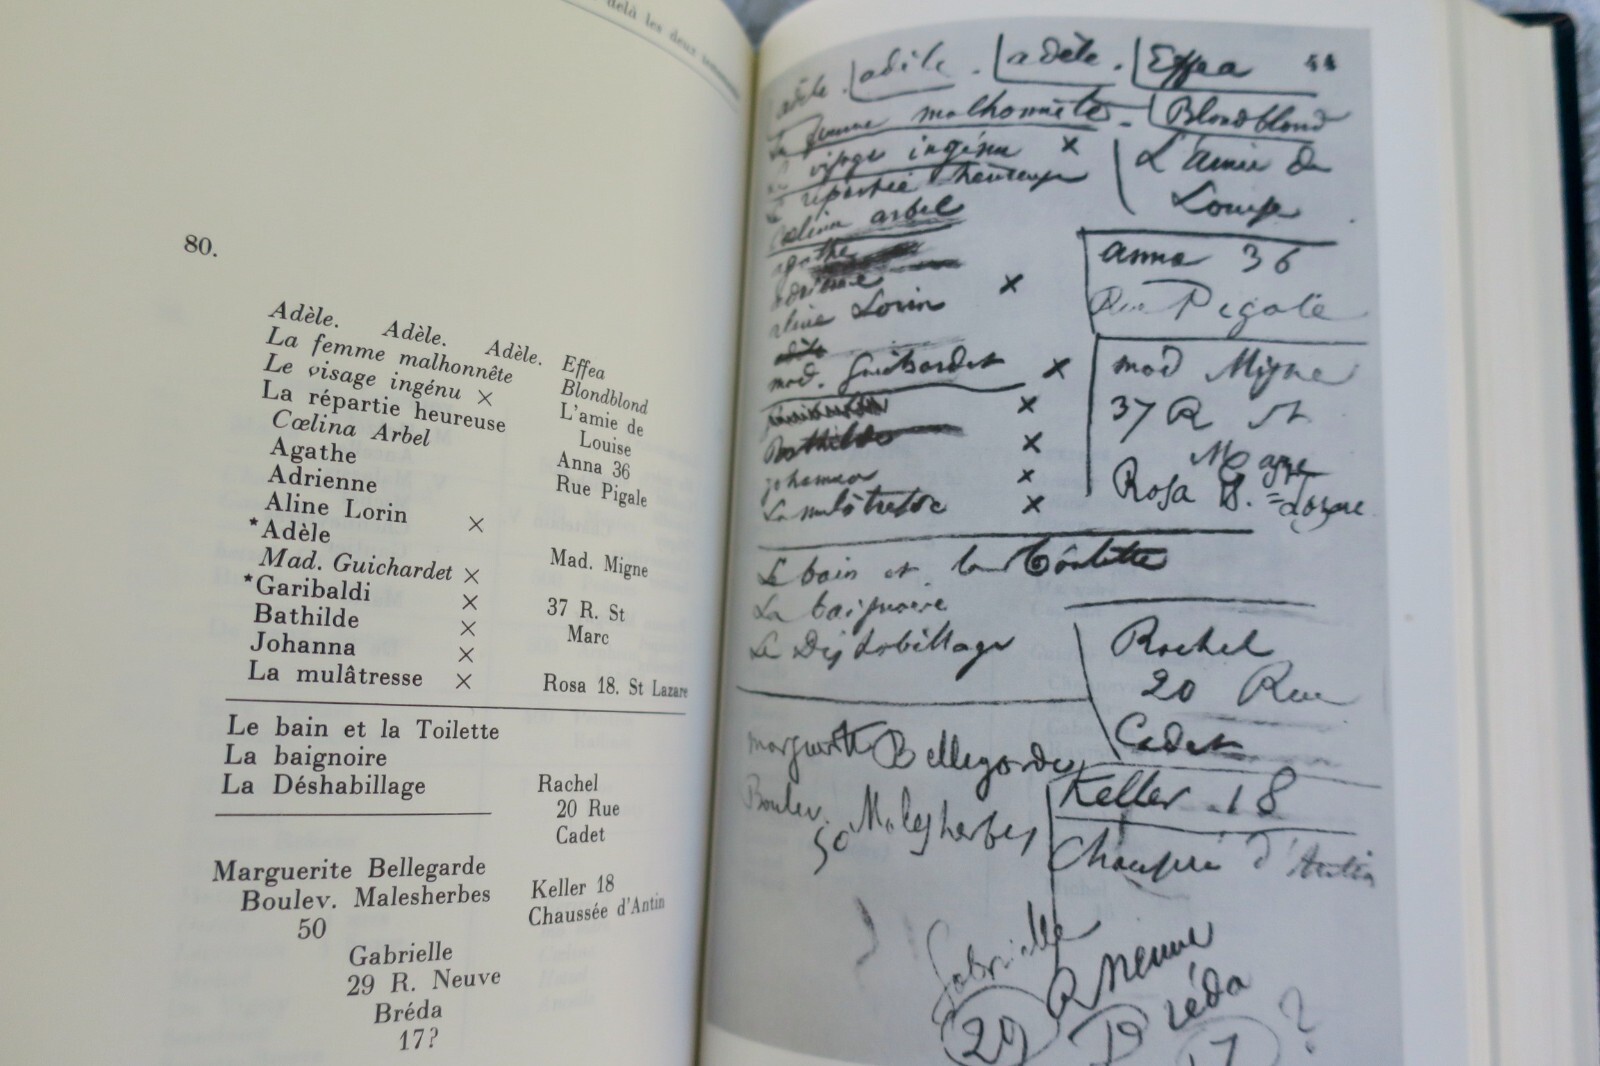 delà les deux
80.
Adèle. Adèle. Adèle. Effea
La femme malhonnête Blondblond
Le visage ingénu × L'amie de
La répartie heureuse Louise
Cœlina Arbel Anna 36
Agathe Rue Pigale
Adrienne
Aline Lorin ×
*Adèle Mad. Migne
Mad. Guichardet ×
*Garibaldi × 37 R. St
Bathilde × Marc
Johanna ×
La mulâtresse × Rosa 18. St Lazare
Le bain et la Toilette
La baignoire
La Déshabillage Rachel
20 Rue
Cadet
Marguerite Bellegarde
Boulev. Malesherbes Keller 18
50 Chaussée d'Antin
Gabrielle
29 R. Neuve
Bréda
17?
44
adèle. adèle. adèle. Effea
La femme malhonnête. Blondblond
Le visage ingénu × L'amie de
La répartie heureuse Louise
Cœlina arbel
agathe anna 36
adrienne × Rue Pigale
aline Lorin
adèle
mad. Guichardet × mad Migne
× 37 R St
Bathilde × Marc
johanna × Rosa 18. = Lazare
La mulâtresse ×
Le bain et la Toilette
La baignoire
Le Déshabillage Rachel
20 Rue
Cadet
marguerite Bellegarde Keller 18
Boulev. Malesherbes
50 Chaussée d'Antin
Gabrielle
29 R neuve
Bréda
17 ?